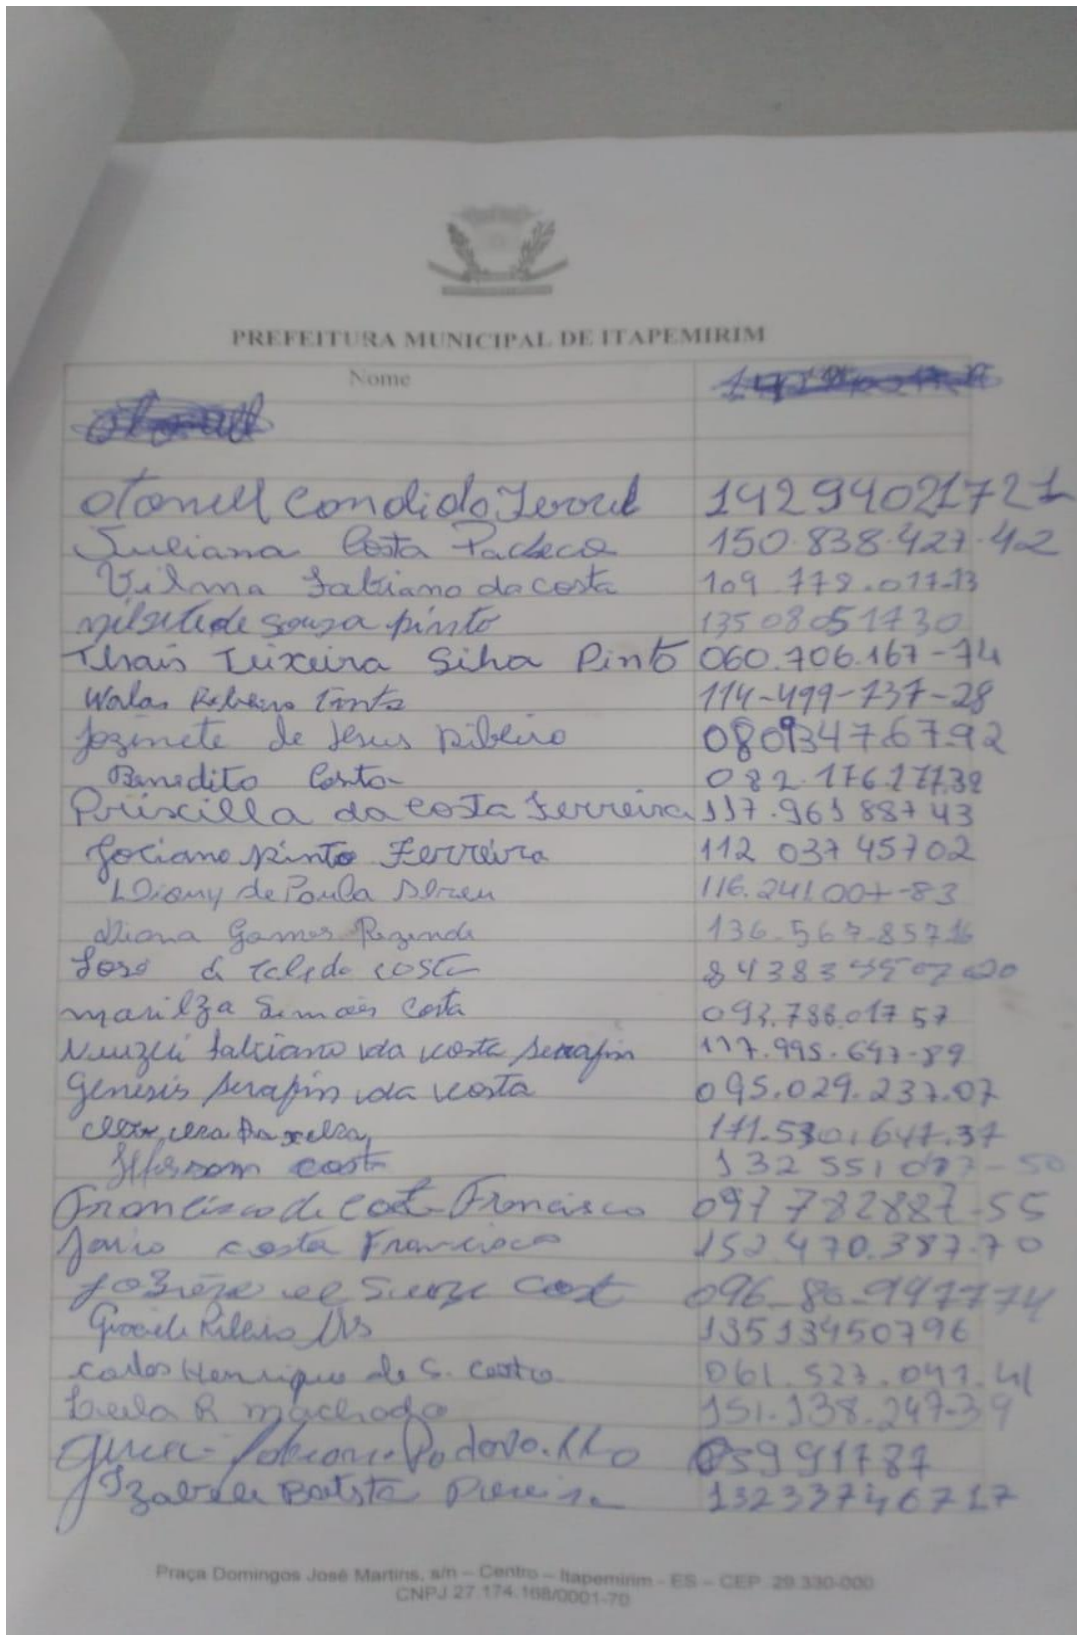 PREFEITURA MUNICIPAL DE ITAPEMIRIM
Nome
Otoniell Condido 14294021721
Juliana Costa Pacheco 150.838.427.42
Vilma Fabiano da costa 109.779.017-13
nilsete de souza pinto 13508051730
Thais Teixeira Silva Pinto 060.706.167-74
Walas Ribeiro Pinto 114-499-737-28
Jozinete de Jesus Ribeiro 08093476792
Benedito Costa 082.176.177.39
Priscilla da Costa Ferreira 117.96188743
Jociano Pinto Ferreira 112 037 45702
de Paula Abreu 116.241007-83
Diana Gomes Rezende 136.567.857.16
José costa
marilza Simões Costa 093.786.017 57
Fabiano da costa Serafim 117.995.647-89
Genesis Serafim da costa 095.029.237.07
171.530.647.37
Jeferson costa 132 551 077-50
Francisco de Costa Francisco 097 782887-55
Jario costa Francisco 152.470.387.70
13513450796
Carlos Henrique de S. Castro 061.527.097.41
Leila R machado 151.138.247-39
05991787
Izabele Batista Pereira 13233746717
Praça Domingos José Martins, s/n – Centro – Itapemirim - ES – CEP. 29.330-000
CNPJ 27.174.168/0001-70